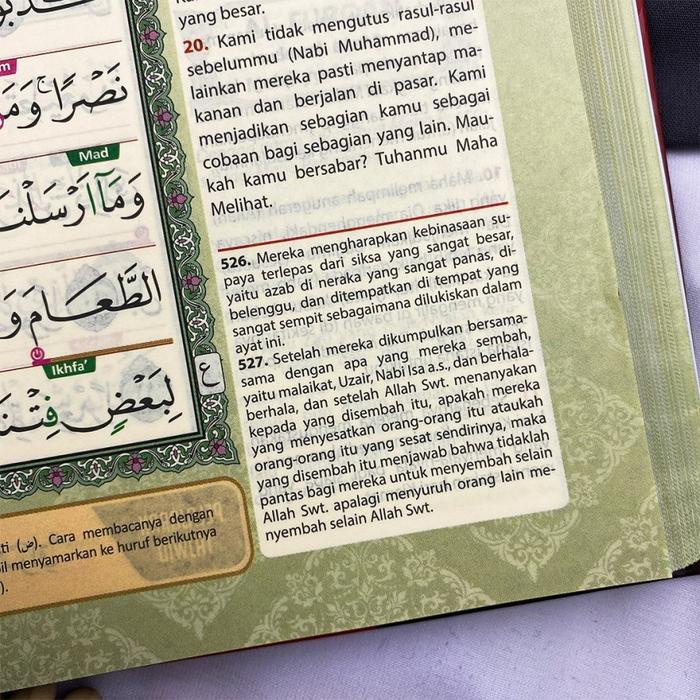 yang besar.
20. Kami tidak mengutus rasul-rasul
sebelummu (Nabi Muhammad), me-
lainkan mereka pasti menyantap ma-
kanan dan berjalan di pasar. Kami
menjadikan sebagian kamu sebagai
cobaan bagi sebagian yang lain. Mau-
kah kamu bersabar? Tuhanmu Maha
Melihat.
526. Mereka mengharapkan kebinasaan su-
paya terlepas dari siksa yang sangat besar,
yaitu azab di neraka yang sangat panas, di-
belenggu, dan ditempatkan di tempat yang
sangat sempit sebagaimana dilukiskan dalam
ayat ini.
527. Setelah mereka dikumpulkan bersama-
sama dengan apa yang mereka sembah,
yaitu malaikat, Uzair, Nabi Isa a.s., dan berhala-
berhala, dan setelah Allah Swt. menanyakan
kepada yang disembah itu, apakah mereka
yang menyesatkan orang-orang itu ataukah
orang-orang itu yang sesat sendirinya, maka
yang disembah itu menjawab bahwa tidaklah
pantas bagi mereka untuk menyembah selain
Allah Swt. apalagi menyuruh orang lain me-
nyembah selain Allah Swt.
نَصْرًا ۚ وَمَ
Mad
وَمَآ اَرْسَلْنَ
الطَّعَامَ وَ
Ikhfa'
لِبَعْضٍ فِتْنَ
ع
ti (ض). Cara membacanya dengan
il menyamarkan ke huruf berikutnya
).